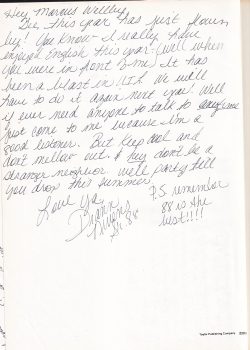 Hey Marcus Wellby
Dec, this year has just flown
by! You know - I really have
enjoyed English this year - well when
you were in front of me. It has
been a blast in IIA. We will
have to do it again next year. Well
if ever need anyone to talk to anytime
just come to me because I'm a
good listener. But keep cool and
don't mellow out. & hey don't be a
stranger neighbor. We'll party till
you drop this summer.
Love Ya,
P.S. remember
88 is the
best!!!!
Sr. 88
Taylor Publishing Company